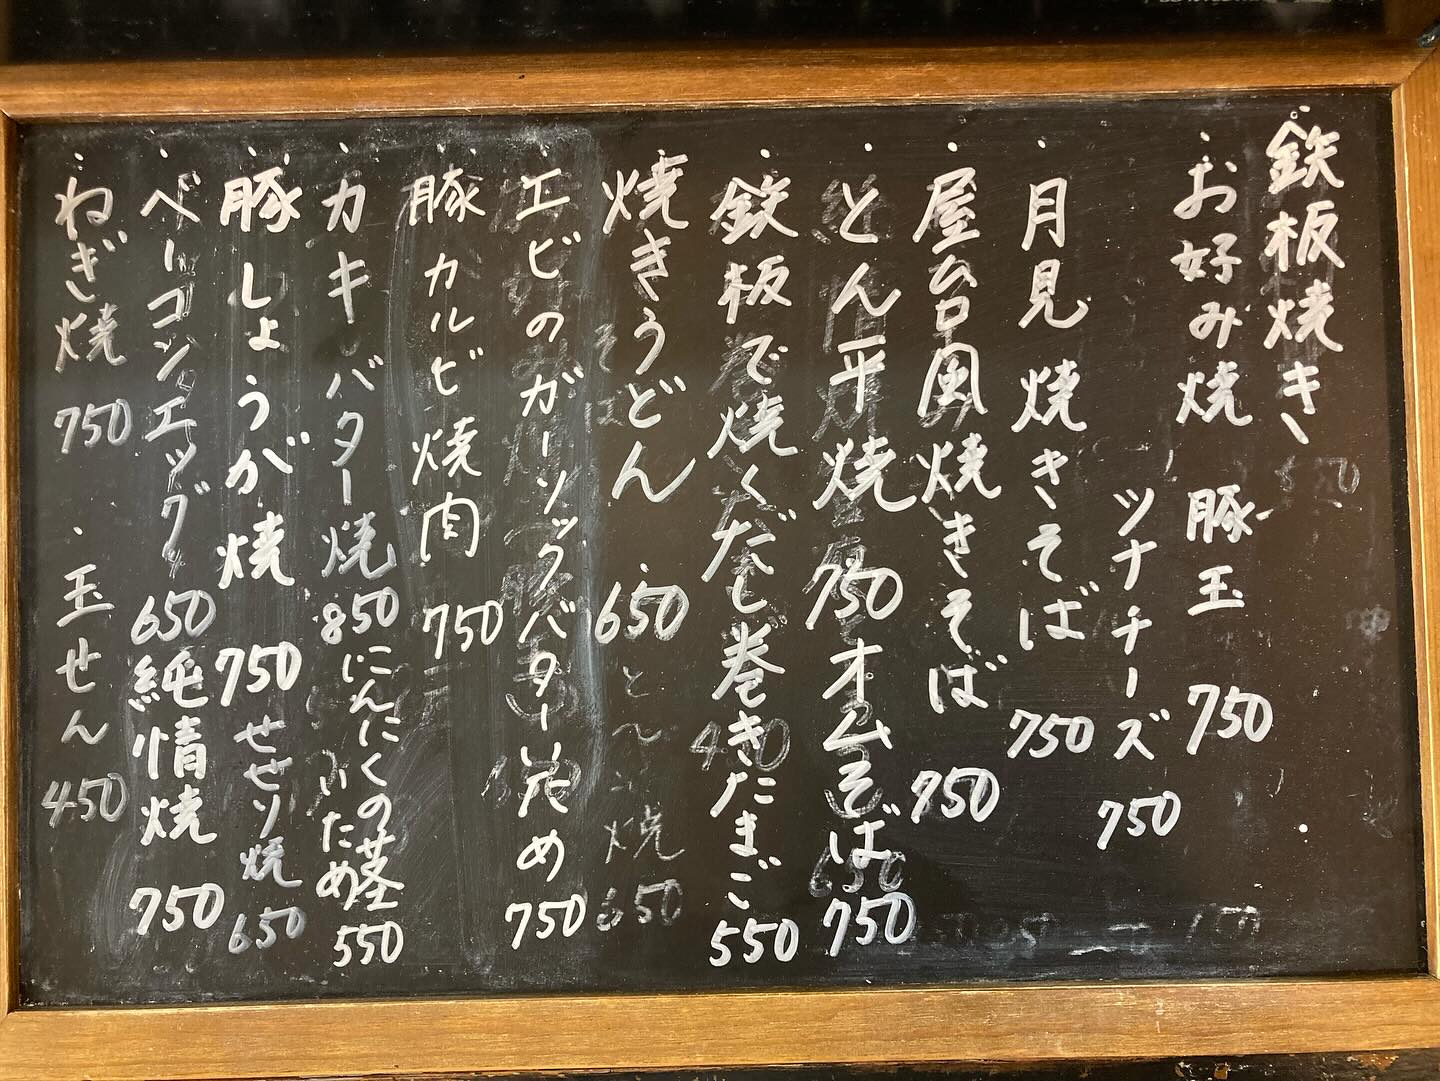 鉄板焼き
・お好み焼 豚玉 750
ツナチーズ 750
・月見焼きそば 750
・屋台風焼きそば 750
・とん平焼 750 オムそば 750
・鉄板で焼くだし巻きたまご 550
・焼きうどん 650 と〜ふ焼 650
・エビのガーリックバターいため 750
・豚カルビ焼肉 750
・カキバター焼 850 にんにくの茎いため 550
・豚しょうが焼 750 せせり焼 650
・ベーコンエッグ 650 純情焼 750
・ねぎ焼 750 ・玉せん 450